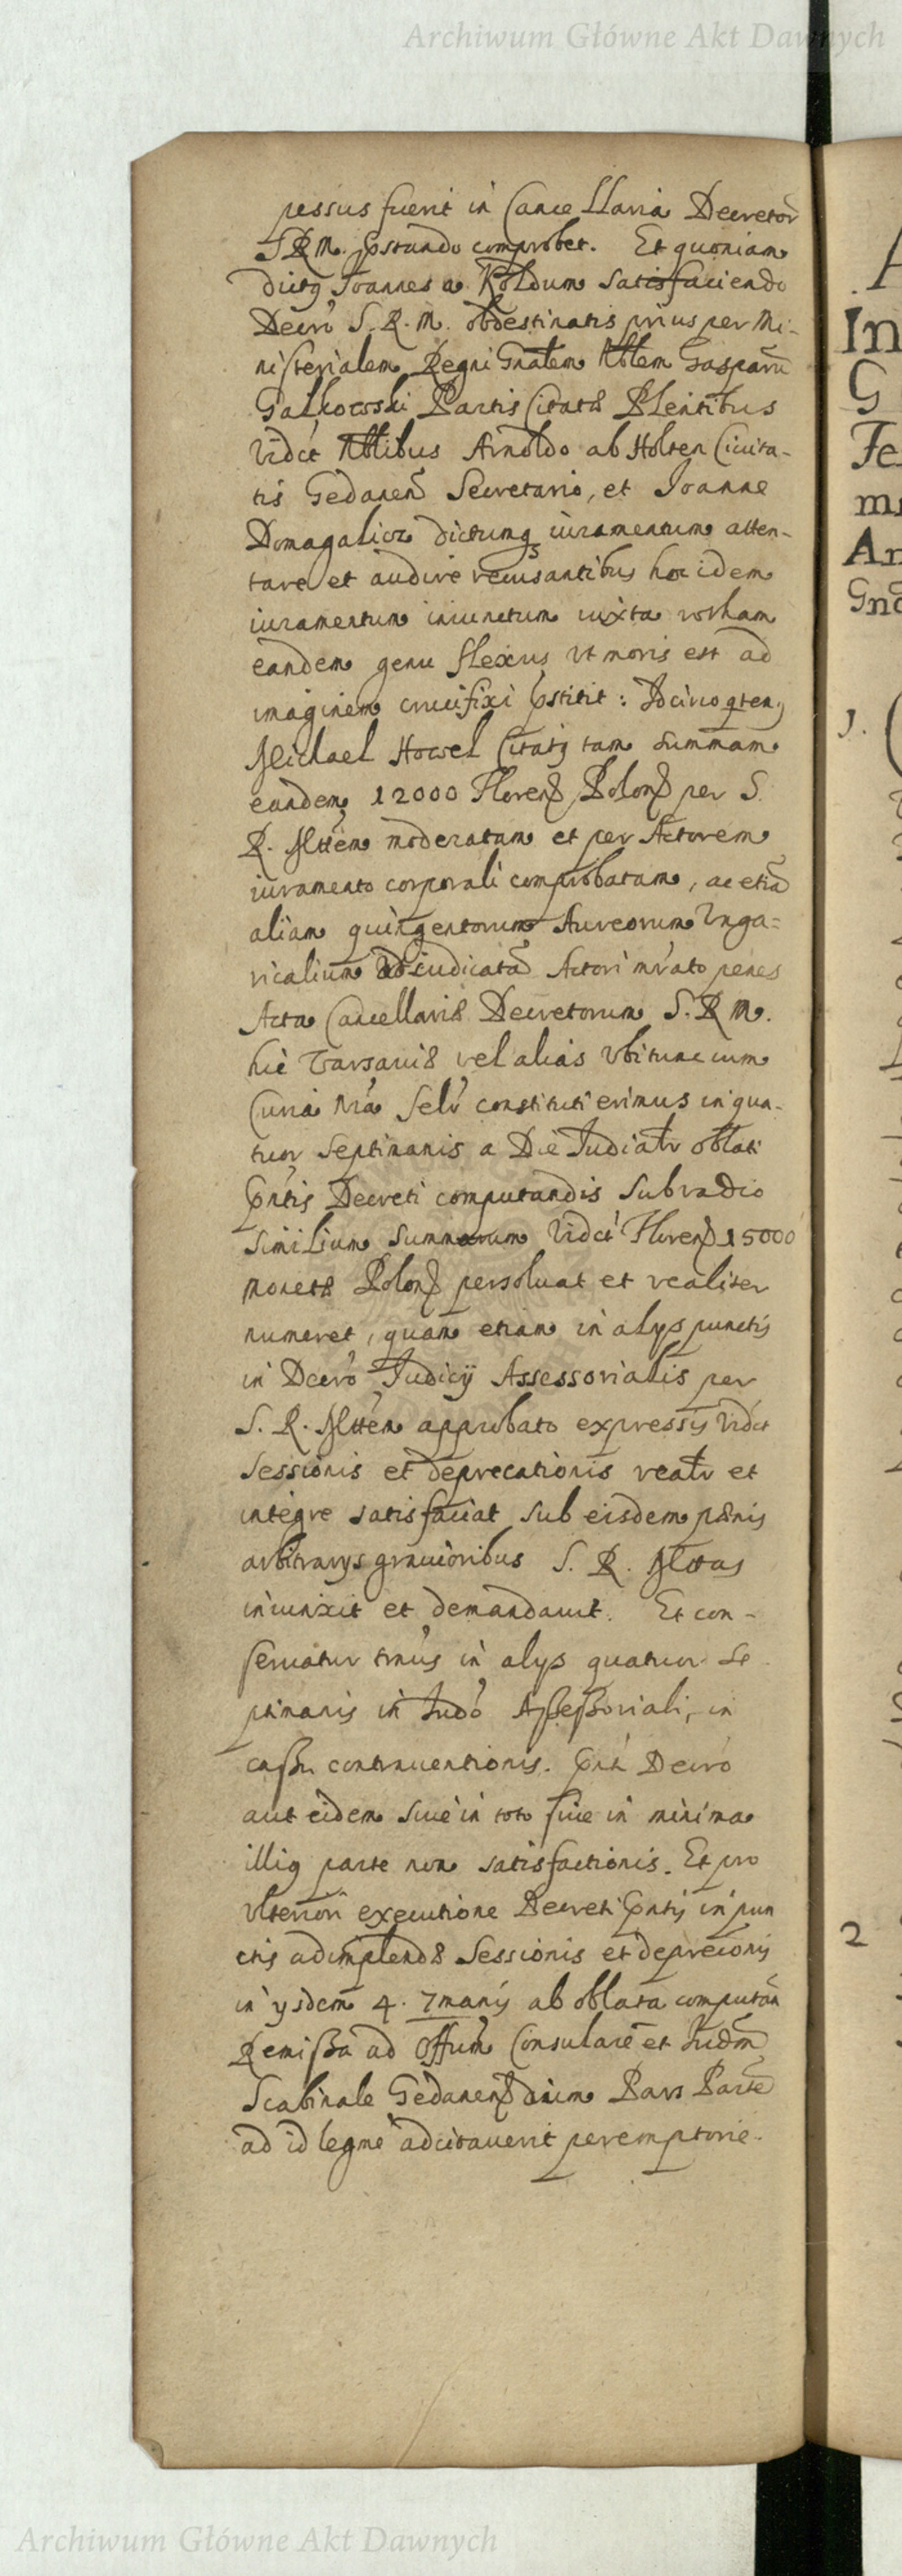 Archiwum Główne Akt Dawnych
pessus fuerit in Cancellaria Decretor
S R M. pstando comprobet. Et quoniam
dictq Joannes a Koldum satisfaciendo
Decro S. R. M. obdestinatis prius per Mi-
nisterialem Regni Gnalem Nblem Gasparu
Gałkowski Partis Citatæ Plentibus
Vidct Nblibus Arnoldo ab Holten Civita-
tis Gedanen Secretario, et Joanne
Domagalicz dictumq iuramentum atten-
tare et audire recusantibus hoc idem
iuramentum iniunctum iuxta rotham
eandem genu flexus ut moris est ad
imaginem crucifixi pstitit: Idcirco qtenq
Michael Howel Citatq tam summam
eandem 12000 Floren Polon per S.
R. Mttem moderatam et per Actorem
iuramento corporali comprobatam, ac etia
aliam quingentorum Aureorum Unga-
ricalium adiudicata Actori iurato penes
Acta Cancellariæ Decretorum S. R M.
hic Varsaviæ vel alias ubi tunc cum
Curia Nra felr constituti erimus in qua-
tuor septimanis a Die Judialr oblati
pntis Decreti computandis sub vadio
similium summarum Vidct Floren 15000
monetæ Polon persoluat et realiter
numeret, quam etiam in alijs punctis
in Decro Judicij Assessorialis per
S. R. Mttem approbato expressis Vidct
sessionis et deprecationis realr et
integre satisfaciat sub eisdem pænis
arbitrarijs gravioribus S. R. Mttas
iniunxit et demandavit. Et con-
seruatur tmus in alijs quatuor Se
ptimanis in Judo Assessoriali, in
cassu contrauentionis. pnti Decro
aut eidem siue in toto siue in minima
illiq parte non satisfactionis. Et pro
ulteriori executione Decreti pntis in pun
ctis adimplendæ Sessionis et deprecionis
in ysdem 4. 7manis ab oblata computan
Remissa ad Offum Consulare et Judm
Scabinale Gedanen dum Pars Parte
ad id legme adcitauerit peremptorie.
In
G
Fe
An
1.
2
Archiwum Główne Akt Dawnych